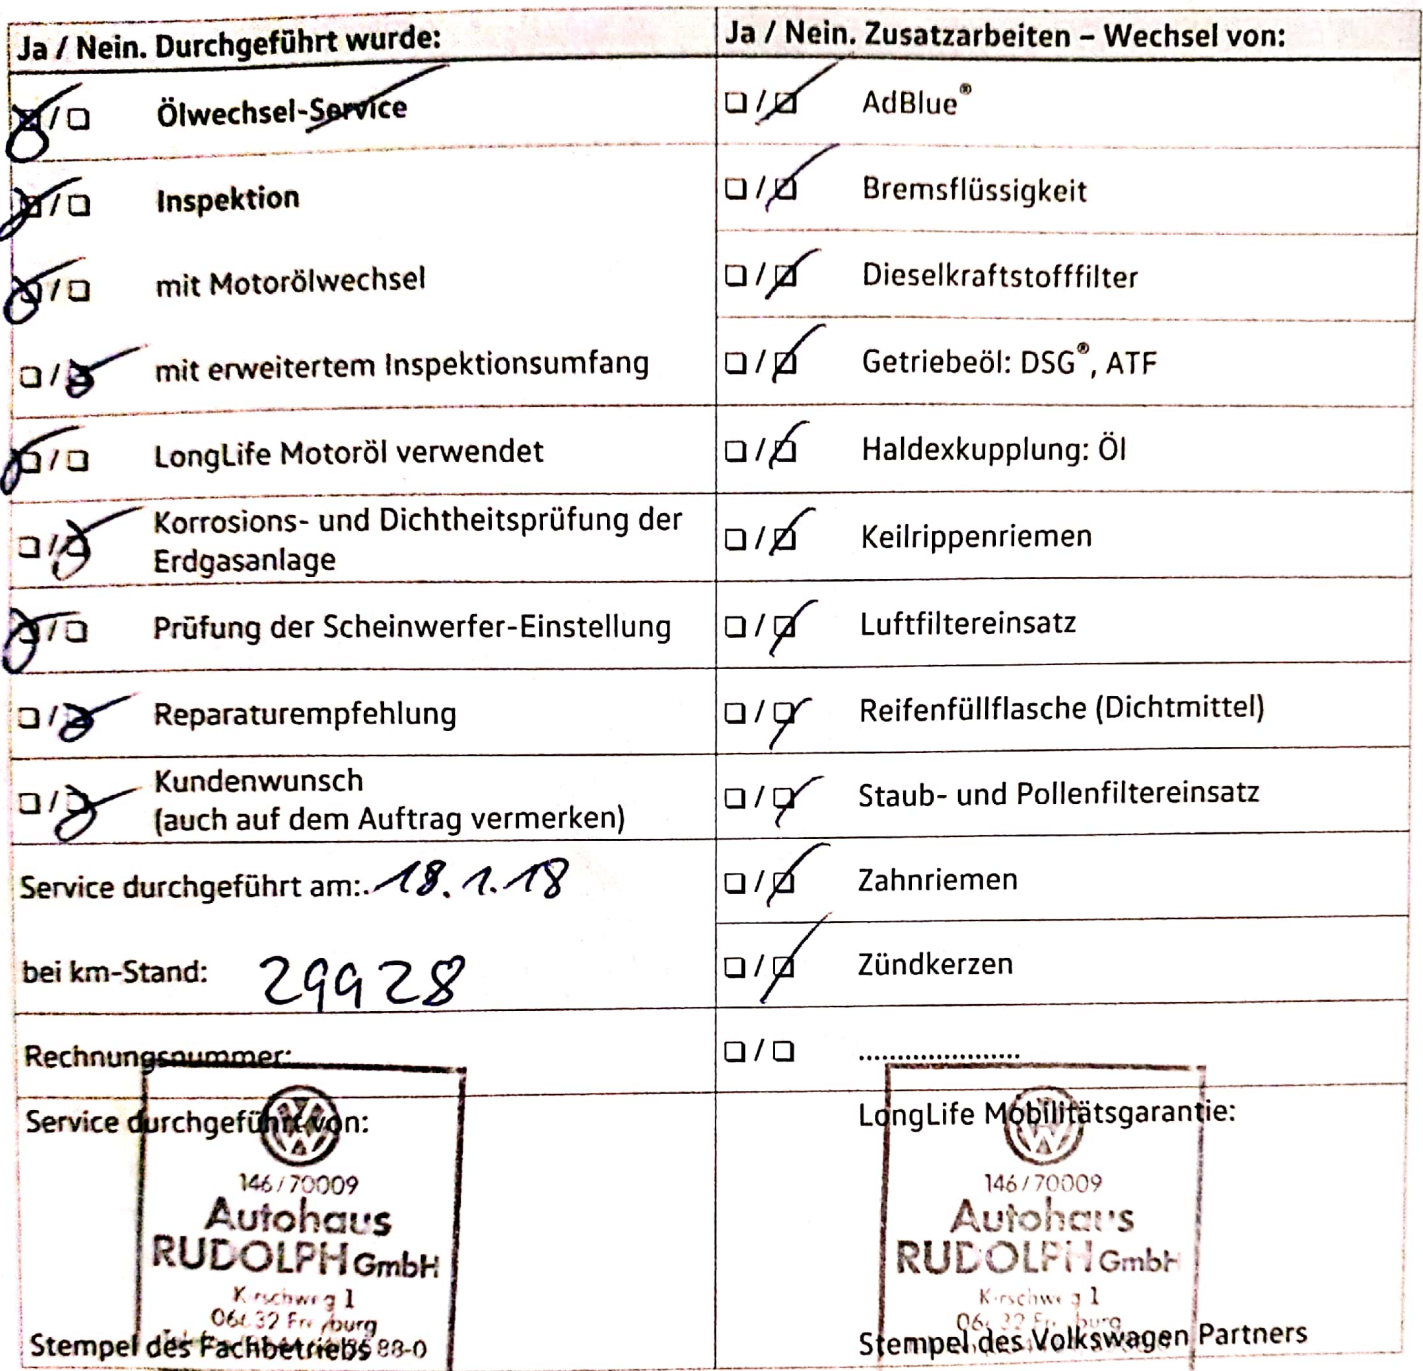 Ja / Nein. Durchgeführt wurde:
Ölwechsel-Service
Inspektion
mit Motorölwechsel
mit erweitertem Inspektionsumfang
LongLife Motoröl verwendet
Korrosions- und Dichtheitsprüfung der
Erdgasanlage
Prüfung der Scheinwerfer-Einstellung
Reparaturempfehlung
Kundenwunsch
(auch auf dem Auftrag vermerken)
Service durchgeführt am: 18.1.18
bei km-Stand: 29928
Rechnungsnummer:
Service durchgeführt von:
146/70009
Autohaus
RUDOLPH GmbH
1
88-0
Stempel des Fachbetriebs
Ja / Nein. Zusatzarbeiten – Wechsel von:
AdBlue®
Bremsflüssigkeit
Dieselkraftstofffilter
Getriebeöl: DSG®, ATF
Haldexkupplung: Öl
Keilrippenriemen
Luftfiltereinsatz
Reifenfüllflasche (Dichtmittel)
Staub- und Pollenfiltereinsatz
Zahnriemen
Zündkerzen
/ .....................
LongLife Mobilitätsgarantie:
146/70009
Autohaus
RUDOLPH GmbH
1
Stempel des Volkswagen Partners